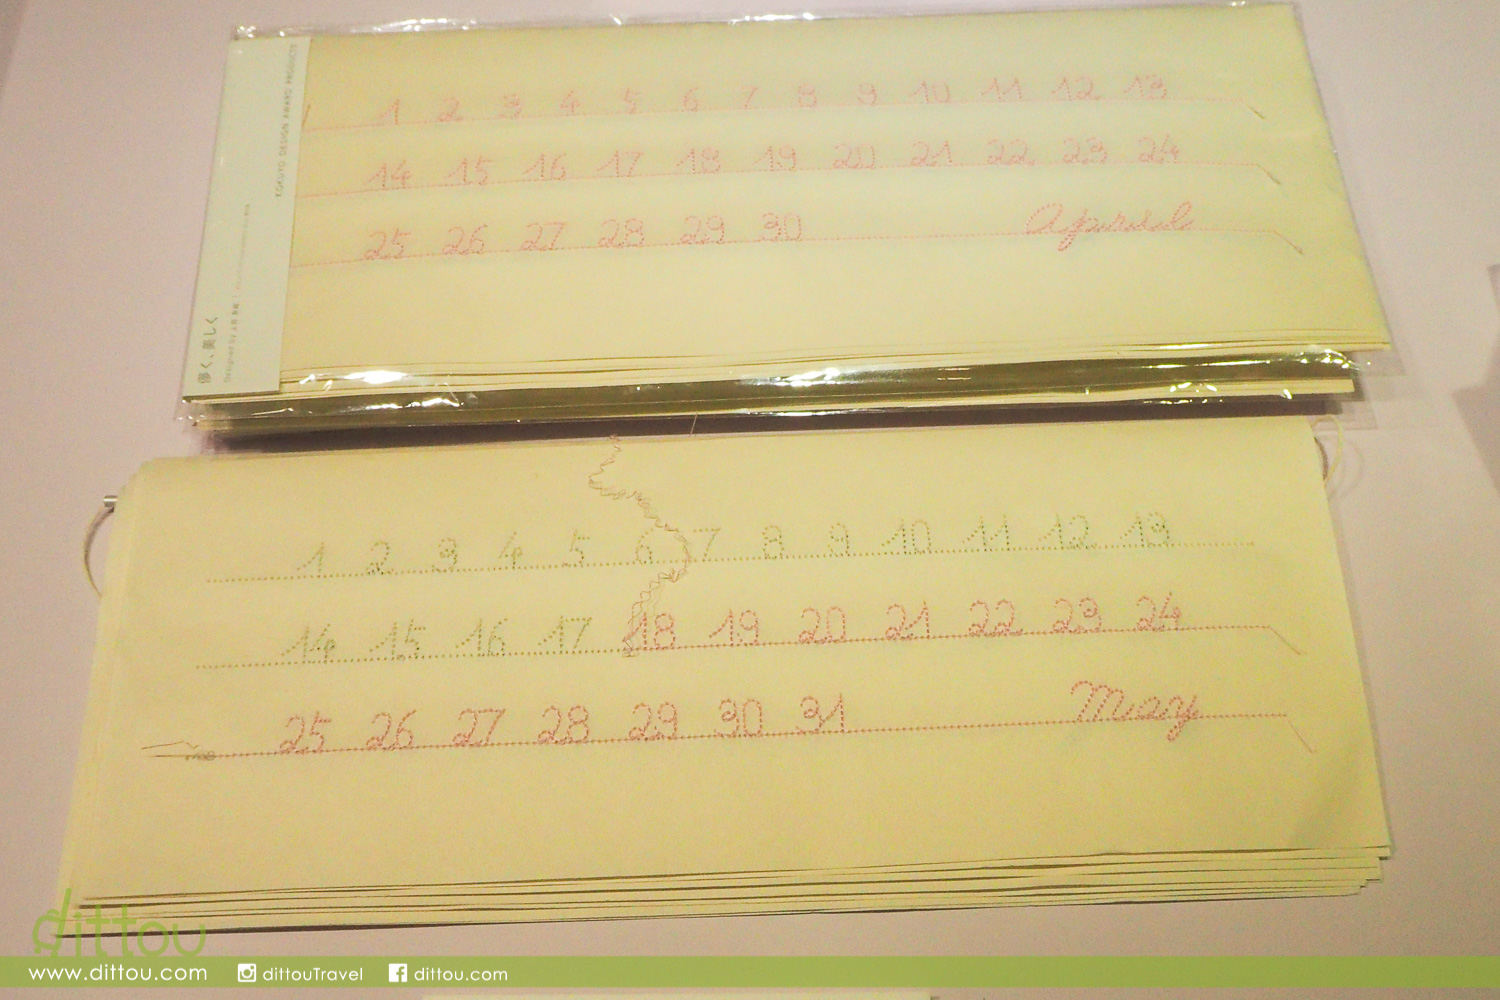 KOKUYO DESIGN AWARD PRODUCTS
儚く、美しく
Designed by
1 2 3 4 5 6 7 8 9 10 11 12 13
14 15 16 17 18 19 20 21 22 23 24
25 26 27 28 29 30 April
1 2 3 4 5 6 7 8 9 10 11 12 13
14 15 16 17 18 19 20 21 22 23 24
25 26 27 28 29 30 31 May
dittou
www.dittou.com dittouTravel dittou.com